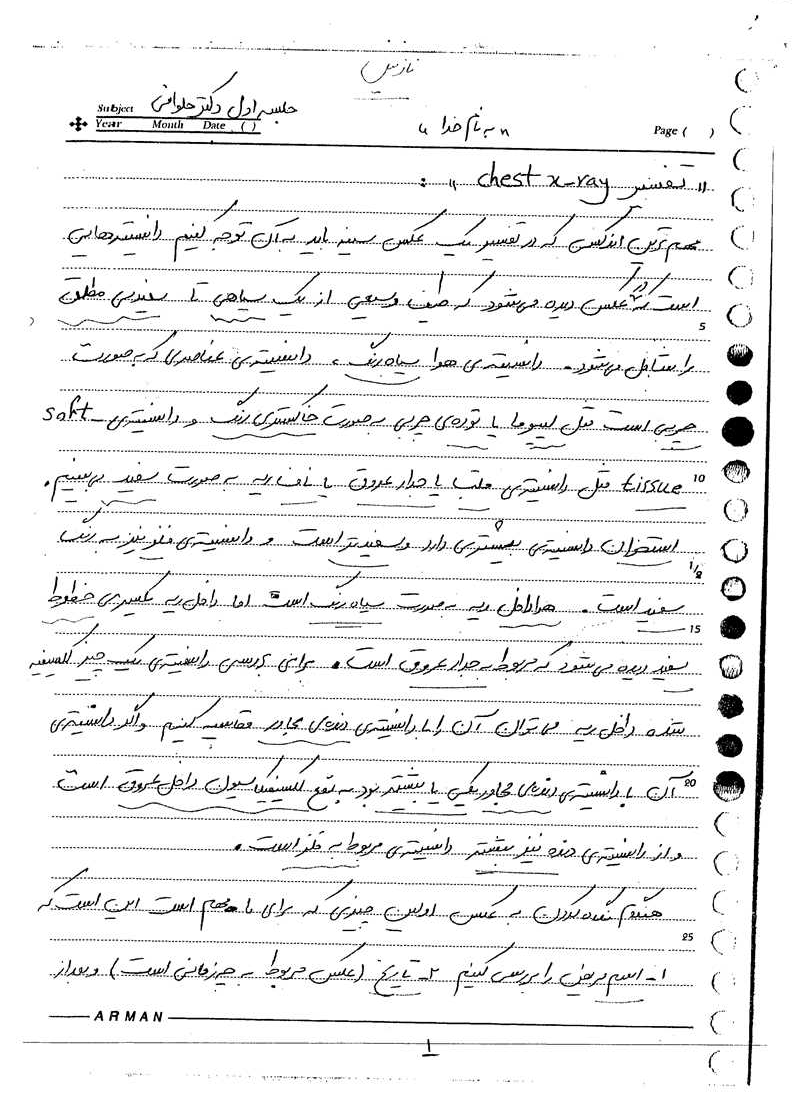 نازنین
Subject جلسه اول دکتر حلوانی
Year Month Date ( )
" به نام خدا "
Page ( )
" تفسیر chest x-ray " :
مهم ترین اندکسی که در تفسیر یک عکس سینه باید به آن توجه کنیم دانسیته‌هایی
است که در عکس دیده می‌شود که طیف وسیعی از یک سیاهی تا سفیدی مطلق
5
را شامل می‌شود. دانسیته‌ی هوا سیاه رنگ، دانسیته‌ی عناصری که به صورت
چربی است مثل لیپوما یا توده‌ی چربی به صورت خاکستری رنگ و دانسیته‌ی soft-
10
tissue مثل دانسیته‌ی قلب یا جدار عروق یا ناف ریه به صورت سفید می‌بینیم.
استخوان دانسیته‌ی بیشتری دارد و سفیدتر است و دانسیته‌ی فلز نیز به رنگ
سفید است. هوا داخل ریه به صورت سیاه رنگ است اما داخل ریه یکسری خطوط
15
سفید دیده می‌شود که مربوط به جدار عروق است. برای بررسی دانسیته‌ی یک چیز کلسیفیه
شده داخل ریه می‌توان آن را با دانسیته‌ی دنده‌ی مجاور مقایسه کنیم و اگر دانسیته‌ی
20
آن با دانسیته‌ی دنده‌ی مجاور یکی یا بیشتر بود به نفع کلسیفیکاسیون داخل عروق است
و از دانسیته‌ی دنده نیز بیشتر دانسیته‌ی مربوط به فلز است.
هنگام نگاه کردن به عکس اولین چیزی که برای ما مهم است این است که
25
۱- اسم مریض را بررسی کنیم ۲- تاریخ (عکس مربوط به چه زمانی است) و بعد از
ARMAN
1